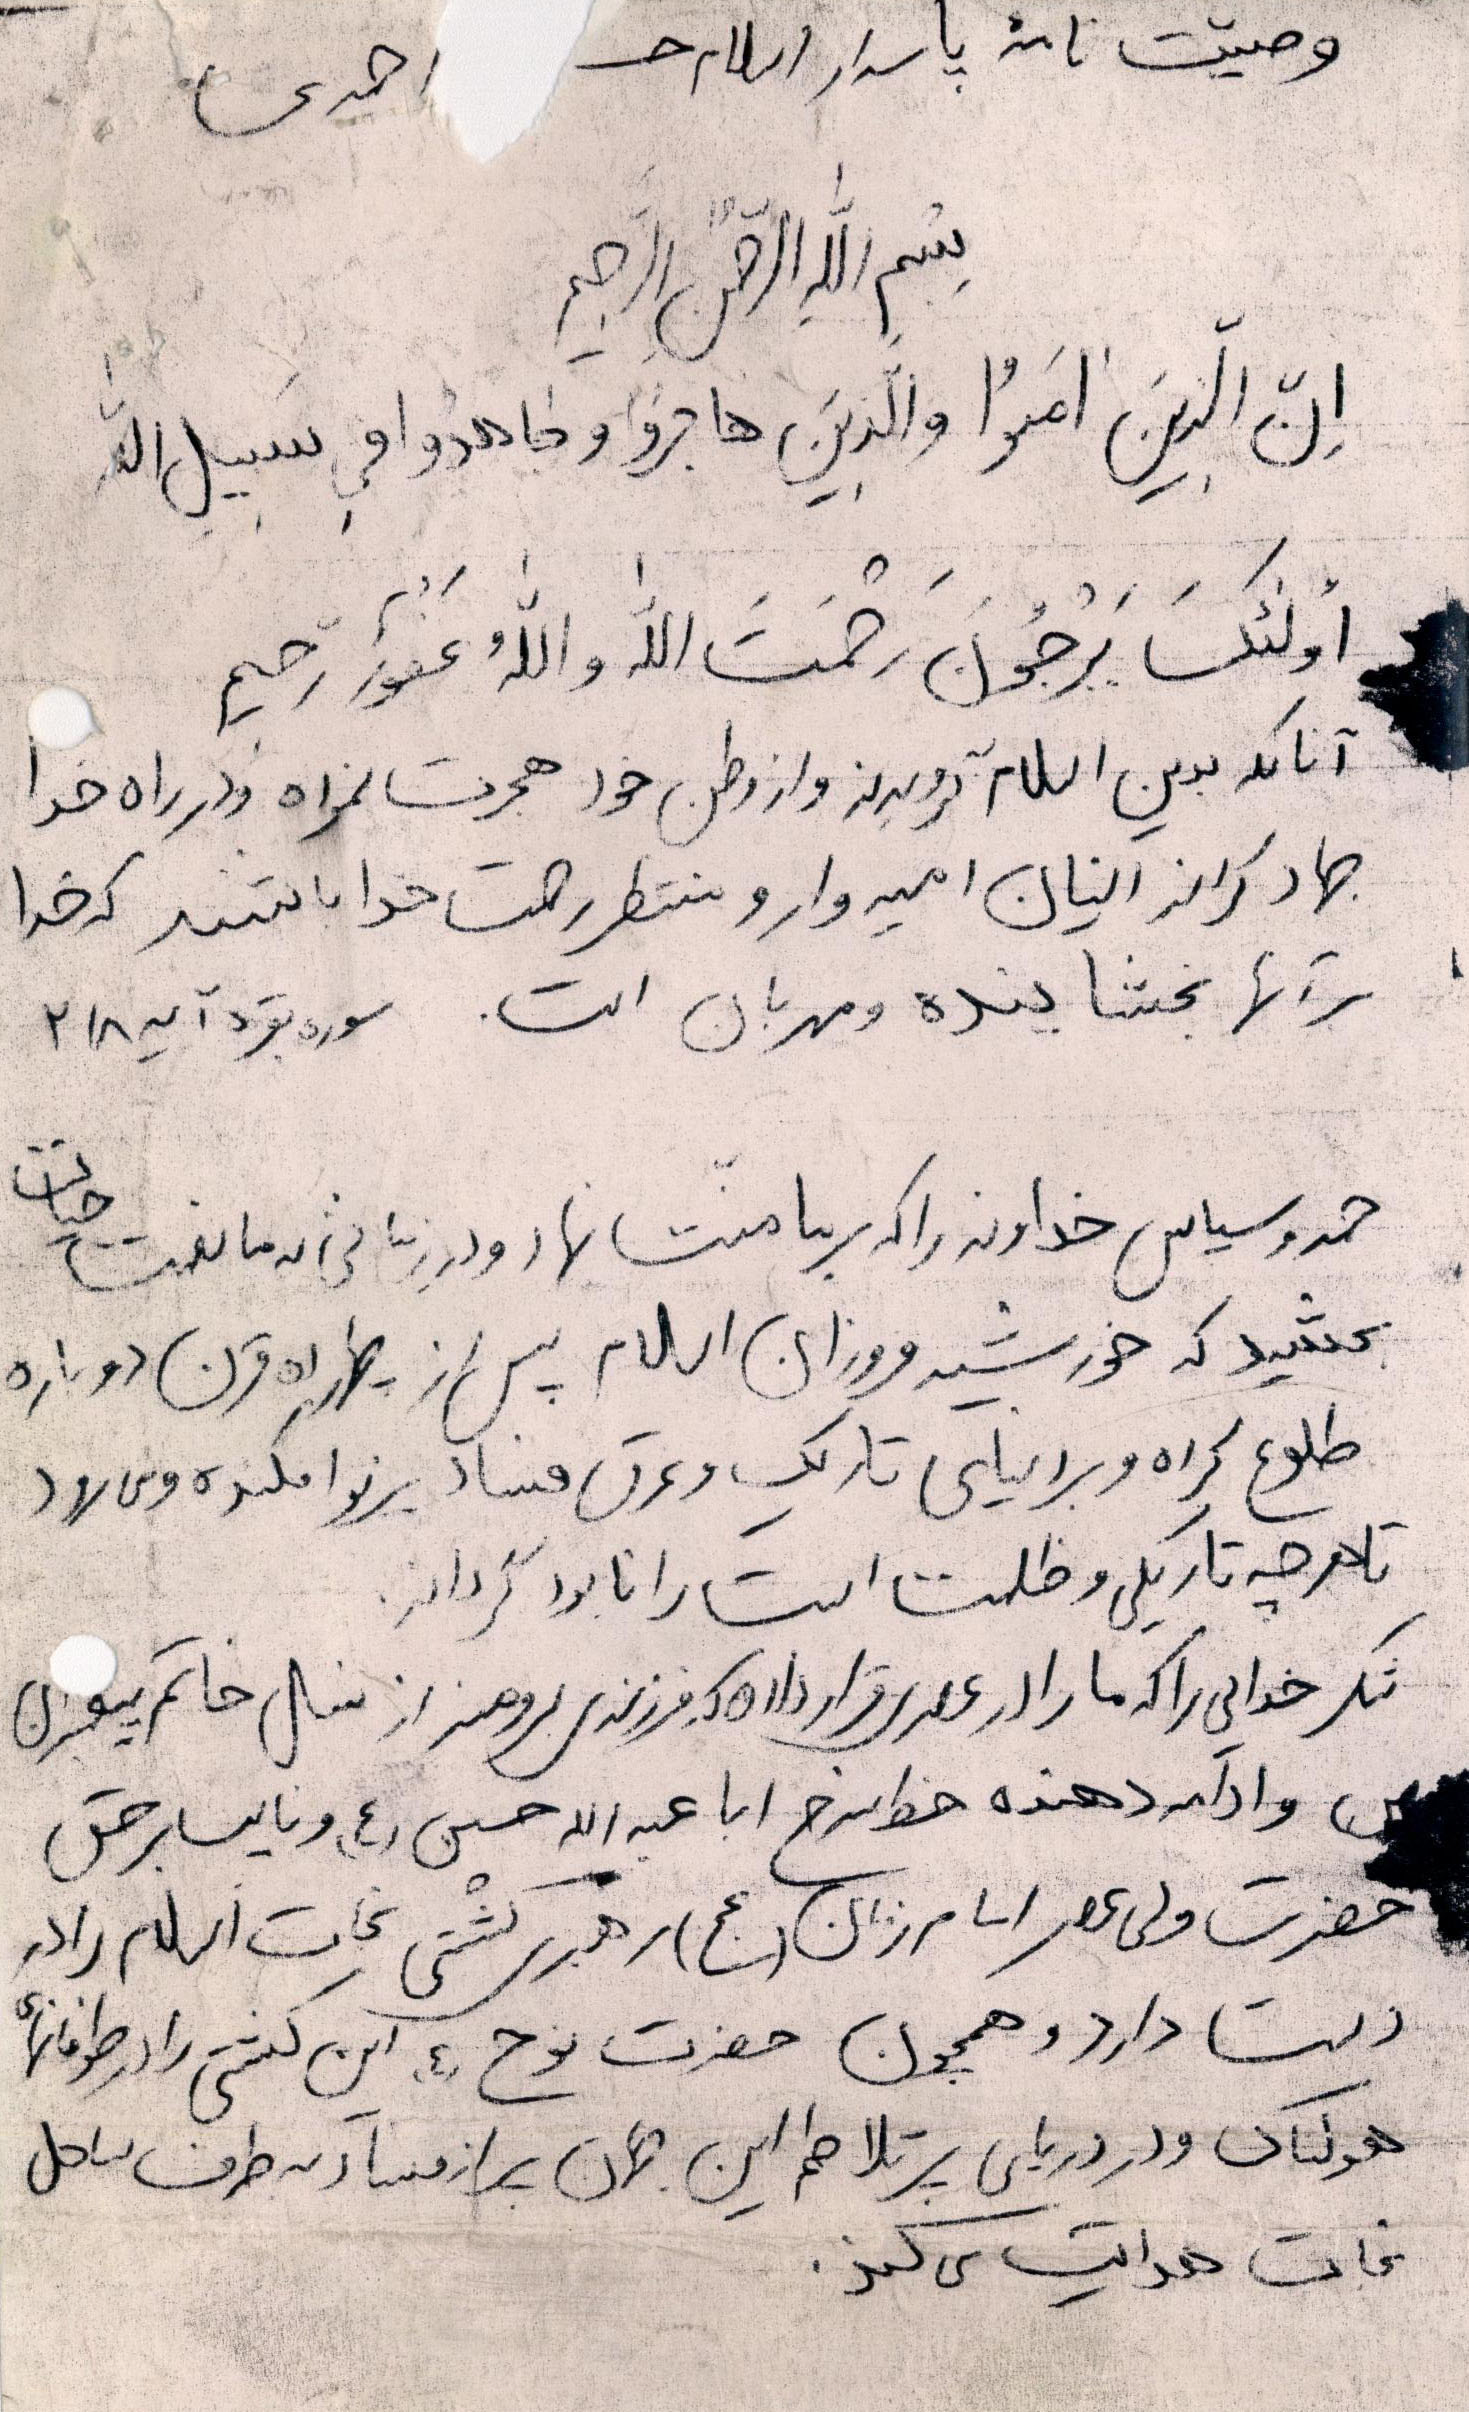 وصیت نامهٔ پاسدار اسلام حـ احمدی
بِسْمِ اللّٰهِ الرَّحْمٰنِ الرَّحِیمِ
اِنَّ الَّذِینَ اٰمَنُوا وَالَّذِینَ هاجَرُوا وَ جٰاهَدُوا فِی سَبِیلِ اللّٰه
اُولٰئِکَ یَرْجُونَ رَحْمَتَ اللّٰه وَ اللّٰهُ غَفُورٌ رَّحیم
آنانکه بدین اسلام گرویدند و از وطن خود هجرت نموده و در راه خدا
جهاد کردند اینان امیدوار و منتظر رحمت خدا باشند که خدا
بر آنها بخشاینده و مهربان است. سوره بقره آیه ۲۱۸
حمد و سپاس خداوند را که بر ما منّت نهاد و در زمانی به ما نعمت حیات
بخشید که خورشید فروزان اسلام پس از چهارده قرن دوباره
طلوع کرده و بر دنیایی تاریک و غرق فساد پرتو افکنده و می رود
تا هر چه تاریکی و ظلمت است را نابود گرداند.
شکر خدایی را که ما را در عصری قرار داده که فرزندی برومند از نسل خاتم پیغمبران
ص و ادامه دهنده خط سرخ ابا عبد الله حسین (ع) و نایب بر حق
حضرت ولی عصر امام زمان (عج) رهبری کشْتی نجات اسلام را در
دست دارد و همچون حضرت نوح (ع) این کشتی را در طوفانهای
هولناک و در دریایی پر تلاطم این جهان پر از فساد به طرف ساحل
نجات هدایت می کند.